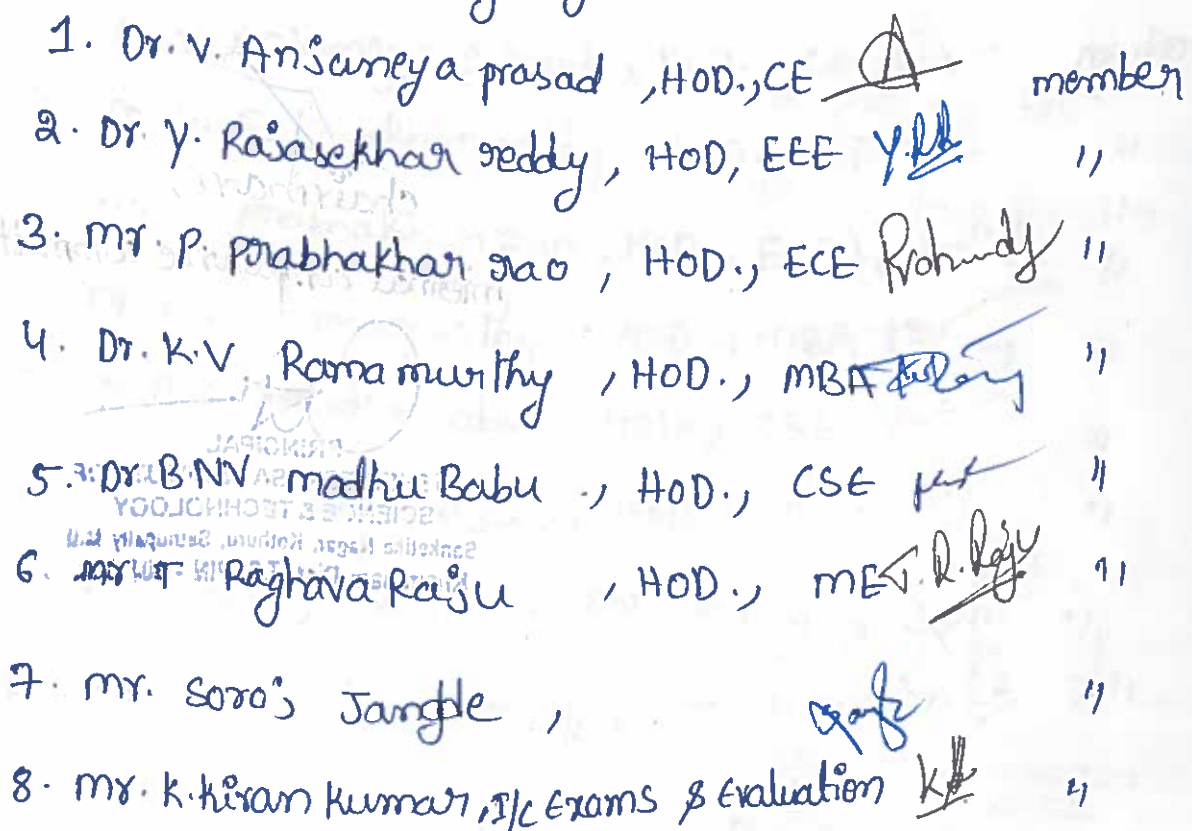 1. Dr. V. Anjaneya prasad , HOD., CE member
2. Dr. Y. Rajasekhar reddy , HOD, EEE Y.R "
3. Mr. P. Prabhakhar rao , HOD., ECE "
4. Dr. K.V. Rama murthy , HOD., MBA "
5. Dr. BNV madhu Babu ., HOD., CSE "
6. Mr T Raghava Raju , HOD., ME T.R.Raju "
7. Mr. Saroj Jangde , "
8. Mr. K.Kiran Kumar, I/C Exams & Evaluation "
PRINCIPAL
SCIENCE & TECHNOLOGY